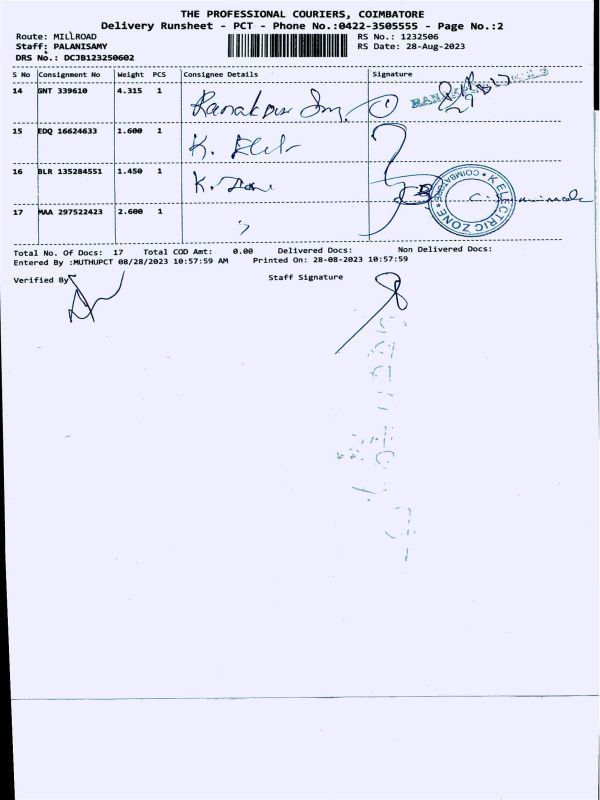 THE PROFESSIONAL COURIERS, COIMBATORE
Delivery Runsheet - PCT - Phone No.:0422-3505555 - Page No.:2
Route: MILLROAD RS No.: 1232506
Staff: PALANISAMY RS Date: 28-Aug-2023
DRS No.: DCJB123250602
S No Consignment No Weight PCS Consignee Details Signature
14 GNT 339610 4.315 1
15 EDQ 16624633 1.600 1 K.
16 BLR 135284551 1.450 1 K.
K ELECTRIC ZONE * COIMBATORE *
17 MAA 297522423 2.600 1
Total No. Of Docs: 17 Total COD Amt: 0.00 Delivered Docs: Non Delivered Docs:
Entered By :MUTHUPCT 08/28/2023 10:57:59 AM Printed On: 28-08-2023 10:57:59
Verified By Staff Signature